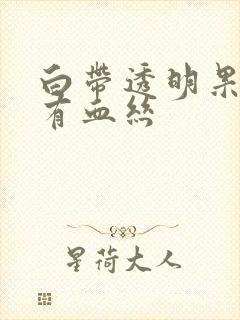 白帶透明果
有血絲
星荷大人